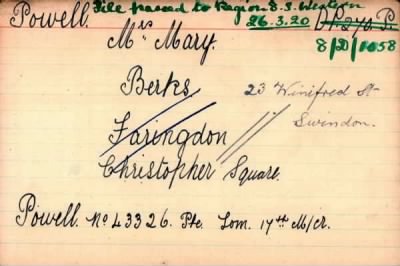 Powell. File passed to Region D.S. Western
26.3.20 D.P. 270 P.
Mrs Mary. 8/D/1058
Berks 23 Winifred St
Faringdon Swindon.
Christopher Square.
Powell. No 43326. Pte. Tom. 17th M/cr.